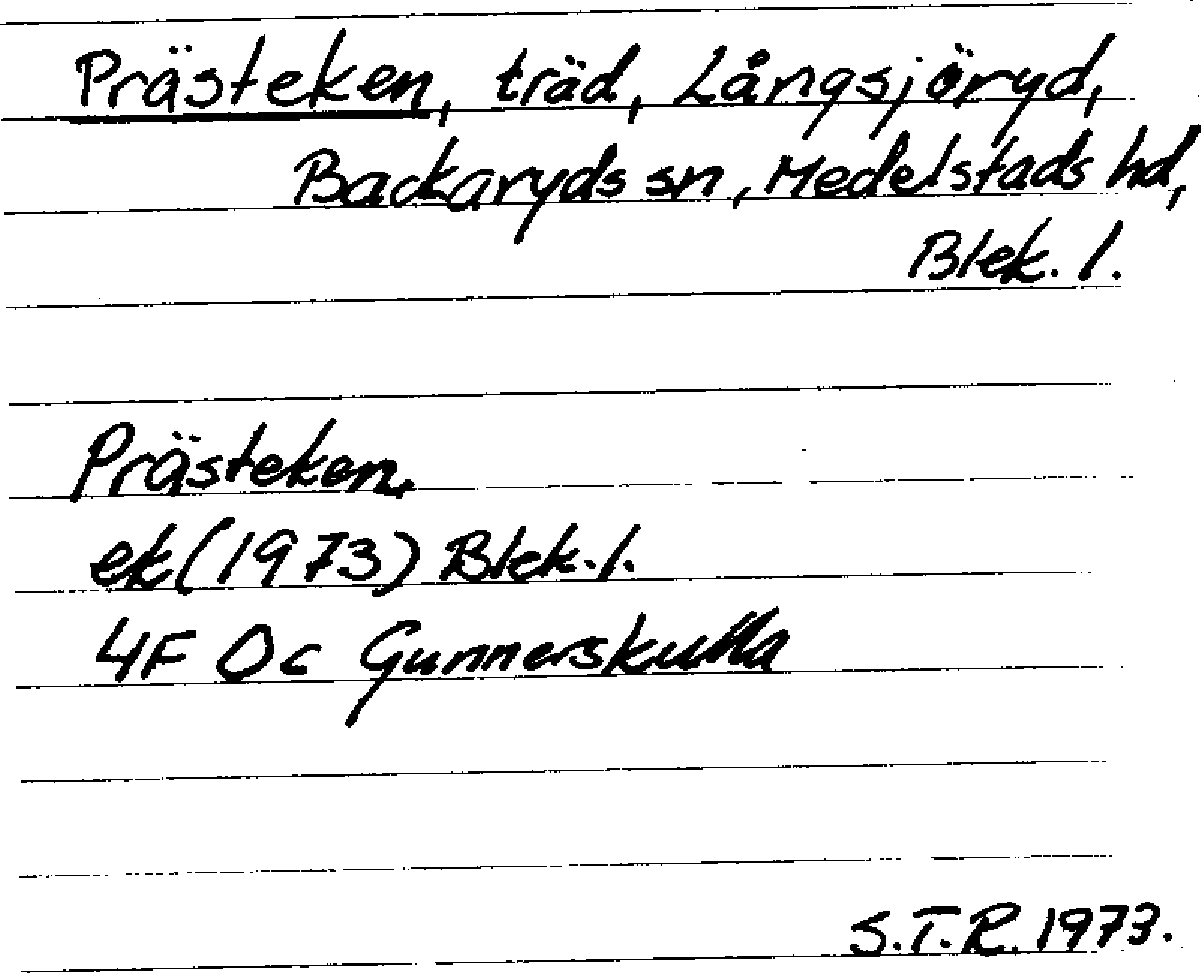 Prästeken, träd, Långsjöryd,
Backaryds sn, Medelstads hd,
Blek. l.
Prästeken.
ek (1973) Blek. l.
4F 0c Gunnerskulla
S.T.R. 1973.